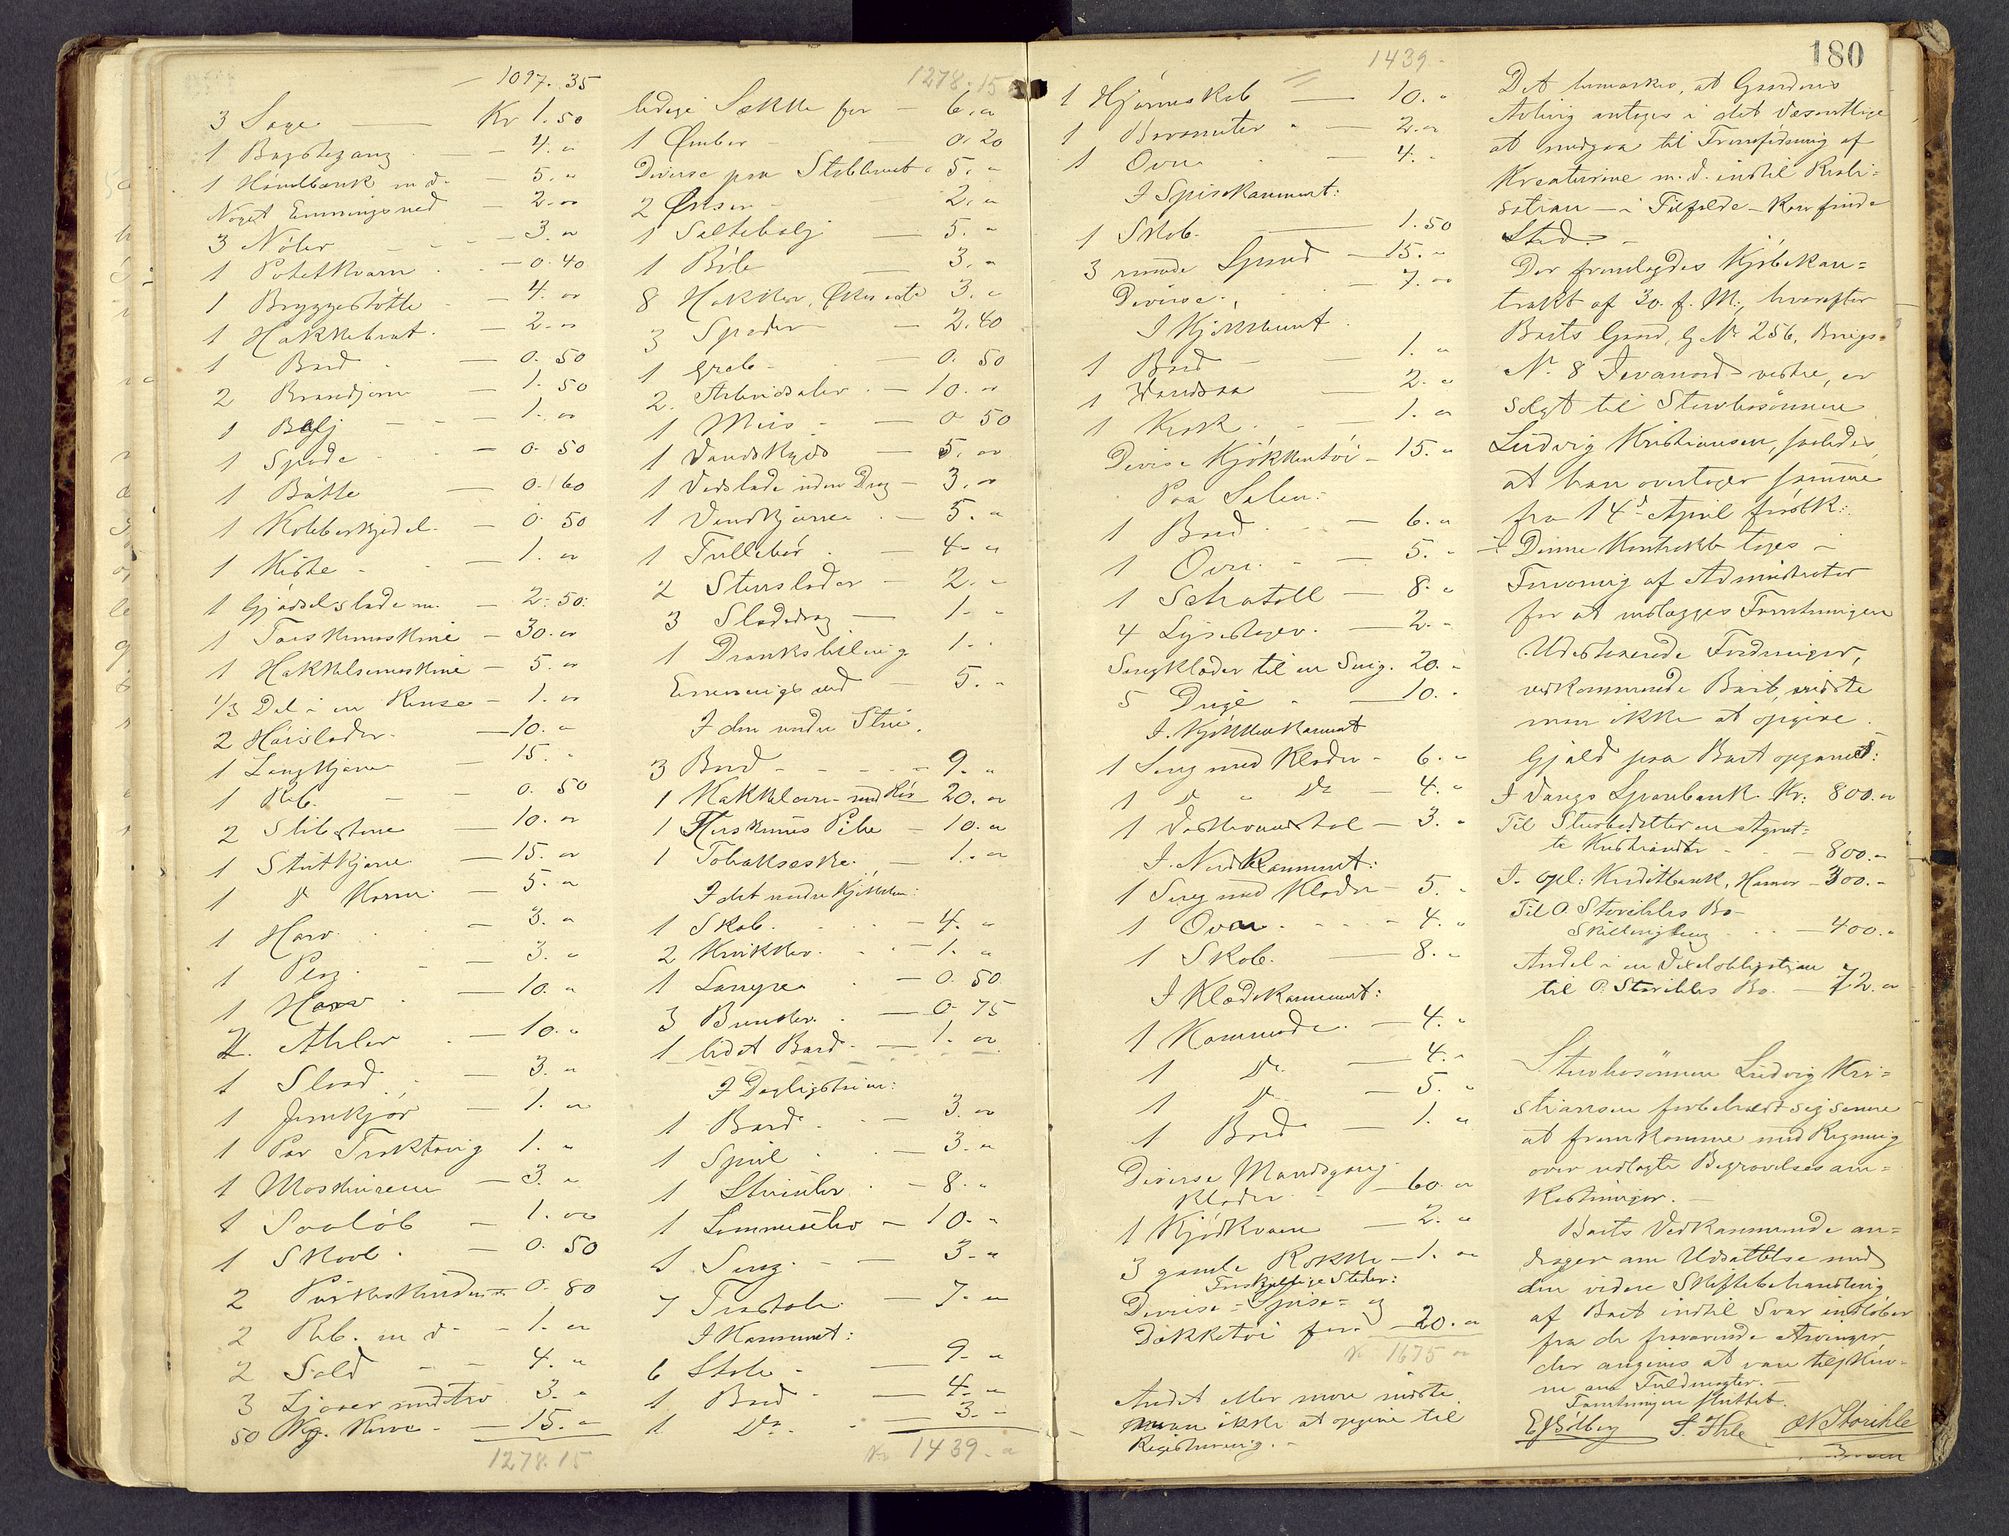 1097.35
3 Sage — Kr 1.50
1 Bagstegang — 4. "
1 Høvelbænk m. d. — 5. "
Noget Emningsved — 2. "
3 Nøler — 3. "
1 Potetkværn — 0.40
1 Bryggestøtte — 4. "
1 Hakkebræt — 2. "
1 Bord — 0.50
2 Brandjern — 1.50
1 Balj — 1. "
1 Spade — 0.50
1 Bøtte — 0.60
1 Kobberkjedel — 0.50
1 Kiste — 1. "
1 Gjødselslade m. — 2.50
1 Tærskemaskine — 30. "
1 Hakkelsemaskine — 5. "
1/3 Del i en Rense — 1. "
2 Høislæder — 10. "
1 Langkjærre — 15. "
1 Reb — 0.50
2 Slibestene — 10. "
1 Stutkjærre — 15. "
1 D° Kærre — 5. "
1 Harv — 3. "
1 Plog — 3. "
1 Harv — 10. "
2 Aksler — 10. "
1 Slaad — 3. "
1 Jernkjør — 1. "
1 Par Træktøvig 1. "
1 — 3. "
1 Saaløb — 1. "
1 Skovl — 0.50
2 — 0.80
2 Reb m d — 1. "
2 Sold — 4. "
3 Ljaaer med træ 3. "
50 Kg. Korn — 15. "
1278.15
1278.15
ledige Sække for — 6. "
1 Ømber — 0.20
Diverse paa Stabburet 5. "
2 Økser — 2. "
1 Saltebalj — 5. "
1 Bile — 3. "
8 Hakker, Økser etc 3. "
3 Spader — 2.40
1 Greb — 0.50
2 Arbeidssæler — 10. "
1 Meis — 0.50
1 Vandkjørs — 5. "
1 Vedslæde uden Drag — 3. "
1 Vandkjærre — 5. "
1 Trillebør — 4. "
2 Stenslæder — 2. "
3 Slædedrag — 1. "
1 Dranksbiling 1. "
Emningsved — 5. "
I den nedre Stue.
3 Bord — 9. "
1 Kakkelovn med Rør 20. "
1 Merskums Pibe — 10. "
1 Tobaksæske — 1. "
I det nedre Kjøkken:
1 Skab — 4. "
2 Krukker — 1. "
1 Lampe — 0.50
3 — 0.75
1 lidet Bord — 1. "
I Dagligstuen:
1 Bord — 3. "
1 Speil — 3. "
1 Stueuhr — 8. "
1 Lommeuhr — 10. "
1 Seng — 3. "
7 Træstole — 7. "
I Kammeret:
6 Stole — 9. "
1 Bord — 4. "
1 D° — 3. "
Kr 1439. "
1439 -
1 Hjørneskab — 10. "
1 Barometer — 2. "
1 Ovn — 4. "
I Spisekammeret:
1 Skab — 1.50
3 runde Spand — 15. "
Diverse — 7. "
I Kjøkkenet.
1 Bord — 1. "
1 Vandsaa — 2. "
1 Krak — 1. "
Diverse Kjøkkentøi — 15. "
Paa Salen:
1 Bord — 6. "
1 Ovn — 5. "
1 Schatoll — 8. "
4 Lysestager — 2. "
Sengklæder til en Seng 20. "
5 Duge — 10. "
I Kjøkkenkammeret
1 Seng med Klæder — 6. "
1 D° " D° — 4. "
1 — 3. "
I Nordkammeret:
1 Seng med Klæder — 5. "
1 Ovn — 4. "
1 Skab — 8. "
I Klædekammeret:
1 Kommode — 4. "
1 D° — 4. "
1 D° — 5. "
1 Bord — 1. "
Diverse Mandsgang-
klæder — 60. "
1 Kjødkværn — 2. "
3 gamle Rokke — 1. "
Forskjellige Steder:
Diverse Spise- og
Dækketøi for — 20. "
Kr 1675 "
Andet eller mere vidste
man ikke at opgive til
Registrering. —
180
Det bemærkes, at Gaardens
Avling antages i det Væsentlige
at medgaa til Fremfødning af
Kreaturene m. d. indtil Reali-
sation — i Tilfælde — kan finde
Sted. —
Der fremlagdes Kjøbekon-
trakt af 30. f. M., hvorefter
Boets Gaard, G. Nr 256, Brugs-
Nr 8 Jevanord vestre, er
solgt til Stervbosønnen
Ludvig Kristiansen, saaledes
at han overtager samme
fra 14d April førstk:.
Denne Kontrakt toges i
Forvaring af Administrator
for at vedlægges Forretningen
Udestaaende Fordringer,
vedkommende Boet, vidste
man ikke at opgive.
Gjæld paa Boet opgaves:
I Vangs Sparebank Kr: 800. "
Til Stervbodatteren Agnet-
te Kristiansdtr — 800. "
I opl: Kreditbank, Hamar — 300. "
Til O. Storihles Bo
— 400. "
Andel i en Vexelobligation
til P. Storihles Bo — 72. "
Stervbosønnen Ludvig Kri-
stiansen forbeholdt sig senere
at fremkomme med Regning
over udlagte Begravelsesom-
kostninger. —
Boets Vedkommende an-
drager om Udsættelse med
den videre Skiftebehandling
af Boet indtil Svar indløber
fra de fraværende Arvinger
der angives at være tilskrev-
ne om Fuldmagter. —
Forretningen sluttet.
E Sølberg S. Ihle O N Storihle